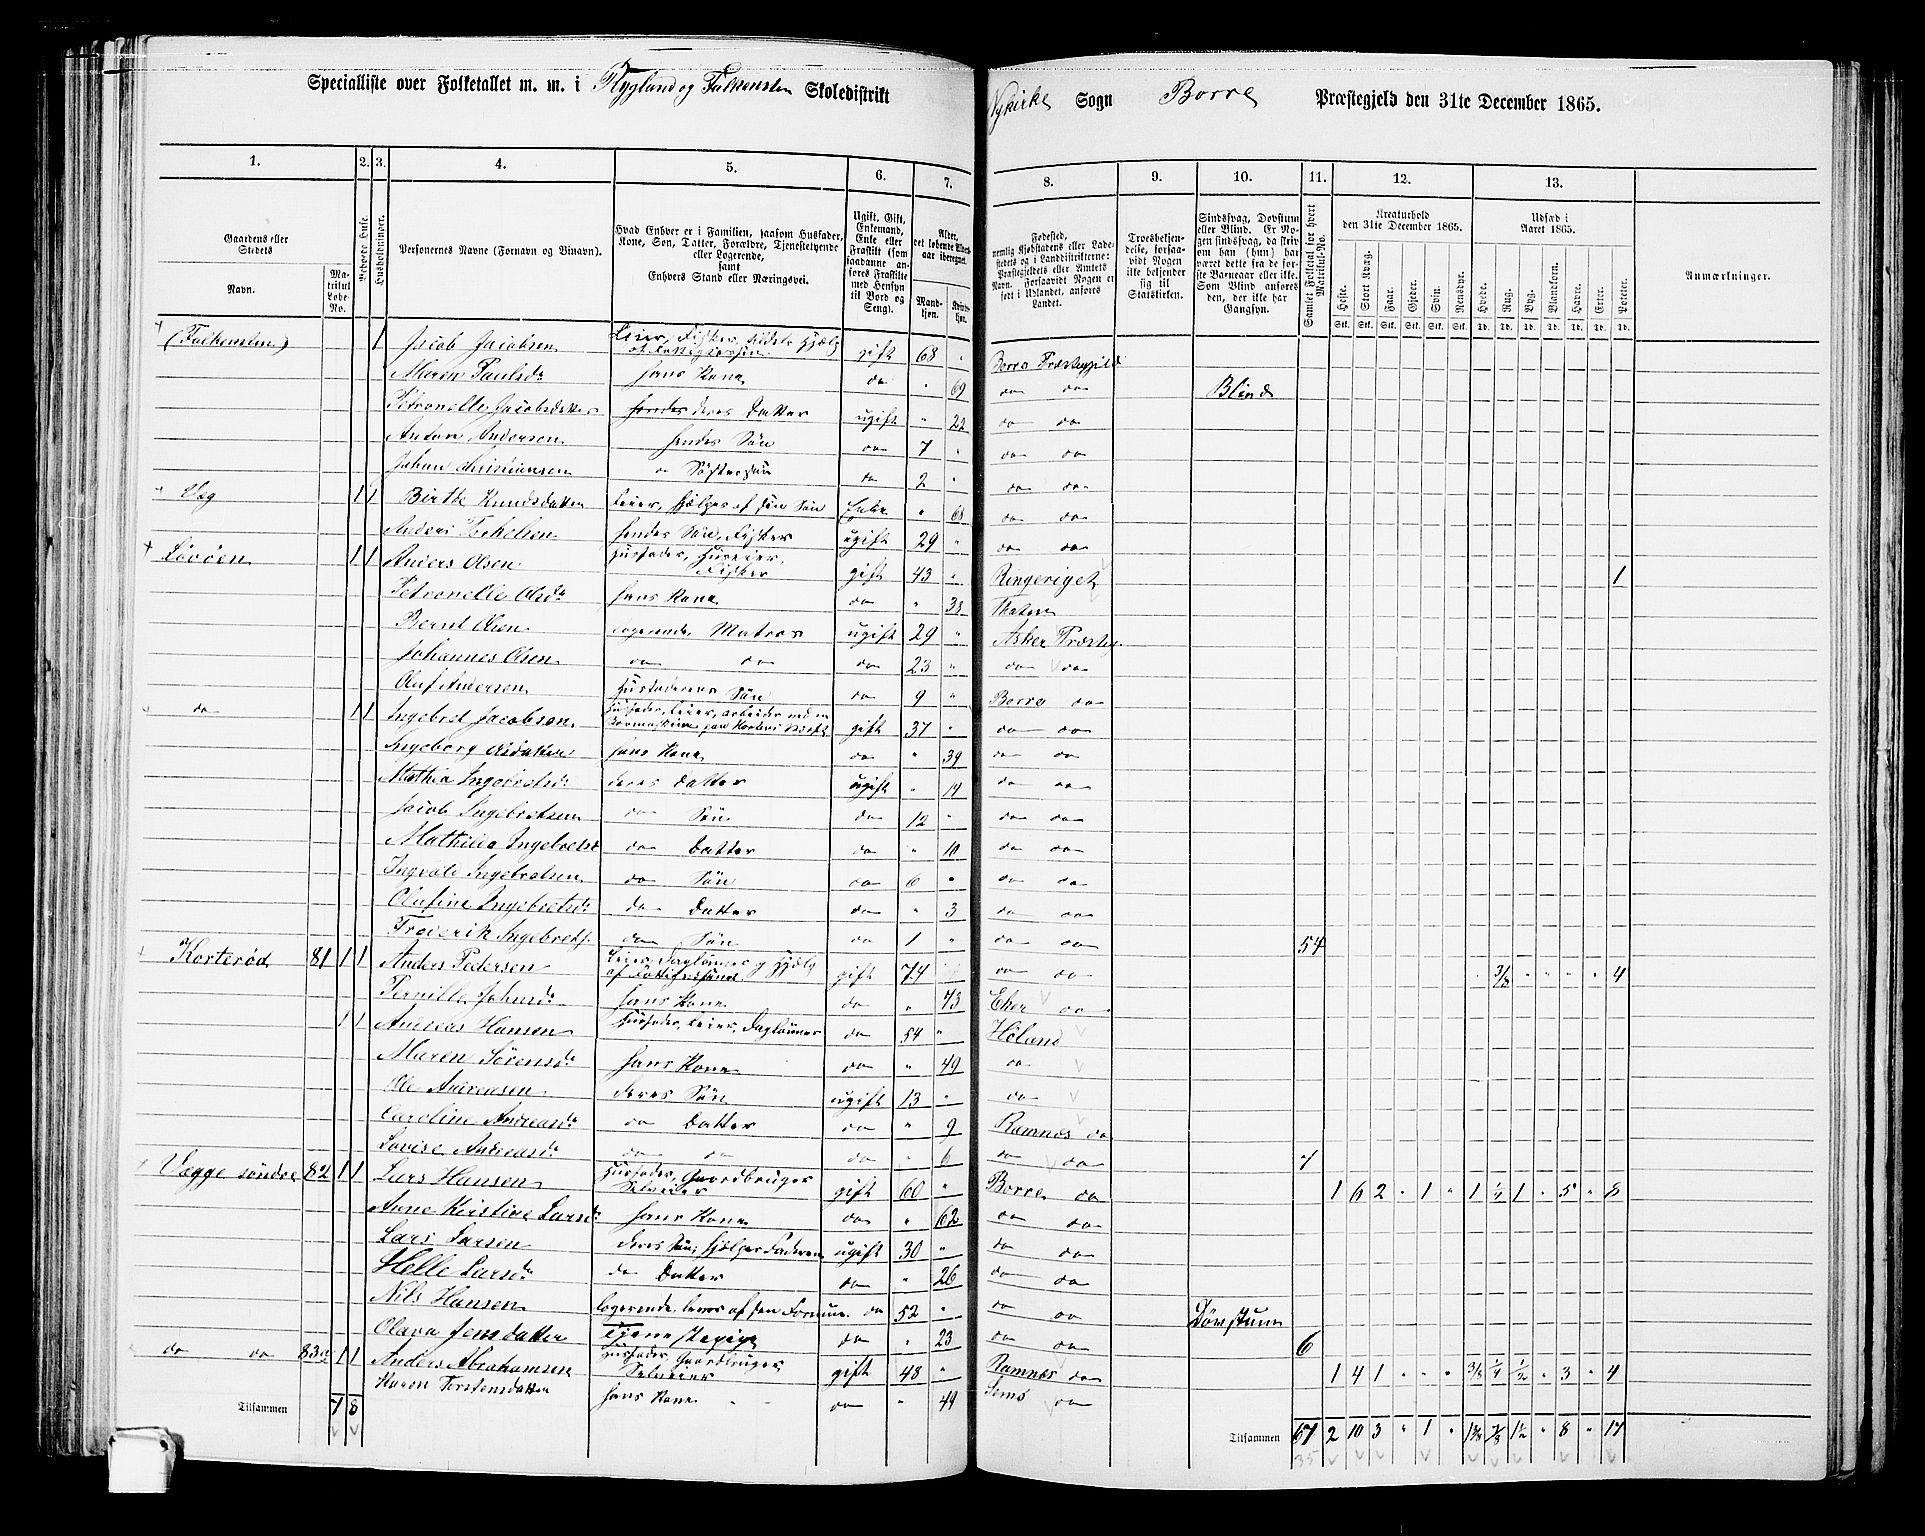 Specialliste over Folketallet m. m. i Rygland og Falkensten Skoledistrikt Nykirke Sogn Borre Præstegjeld den 31te December 1865.
1. 2. 3. 4. 5. 6. 7. 8. 9. 10. 11. 12. 13.
Gaardens eller Stedets Navn. Matrikul Løbe-No. Beboede Huse Husholdninger. Personernes Navne (Fornavn og Binavn). Hvad Enhver er i Familien, saasom Husfader, Kone, Søn, Datter, Forældre, Tjenestetyende eller Logerende, samt Enhvers Stand eller Næringsvei. Ugift, Gift, Enkemand, Enke eller Fraskilt (som saadanne anføres Fraskilte med Hensyn til Bord og Seng). Alder, det løbende Aldersaar iberegnet. Mandkjøn. Kvindekjøn.
Fødested, nemlig Kjøbstadens eller Ladestedets og i Landdistrikterne: Præstegjeldets eller Amtets Navn. Forsaavidt Nogen er født i Udlandet, anføres Landet. Troesbekjendelse, forsaavidt Nogen ikke bekjender sig til Statskirken. Sindssvag, Døvstum eller Blind. Er Nogen sindssvag, da skrives, om han (hun) har været dette fra de første Barneaar eller ikke. Som Blind anføres den, der ikke har Gangsyn. Samlet Folketal for hvert Matrikul-No. Kreaturhold den 31te December 1865. Udsæd i Aaret 1865. Anmærkninger.
Heste. Stort Kvæg. Faar. Gjeder. Svin. Rensdyr. Hvede. Rug. Byg. Blandkorn. Havre. Erter. Poteter.
(Falkensten) 1 Jacob Jacobsen Leier, Fisker, gift 68 " Borre Præstegjeld
Maren Paulsd. hans Kone do " 69 do do Blind
Petronelle Jacobsdatter deres Datter ugift " 22 do do
Anton Andersen hendes Søn do 7 " do do
Johan Christiansen do Søstersøn do 2 " do do
1 1 Birthe Knudsdatter Leier, hjælpes af sin Søn Enke " 68 do do
Anders hendes Søn, Fisker ugift 29 " do do
Løvøen 1 1 Anders Olsen Husfader, Huseier, Fisker gift 43 " Ringeriget 1
Petronelle Olsd. hans Kone do " 38
Bernt Olsen logerende, Matros ugift 29 " Asker Præstg.
Johannes Olsen do do do 23 " do do
Oluf Andersen Husfaderens Søn do 9 " Borre do
do 1 1 Ingebret Jacobsen Husfader, Leier, arbeider ved gift 37 " do do
Ingeborg Olsdatter hans Kone do " 39 do do
Mathia Ingebretsd. deres Datter ugift " 14 do do
Jacob Ingebretsen do Søn do 12 " do do
Mathilda Ingebretsd do Datter do " 10 do do
Ingvald Ingebretsen do Søn do 6 " do do
Olufine Ingebretsd. do Datter do " 3 do do
Frederik Ingebrets. do Søn do 1 " do do 54
Korterød 81 1 1 Anders Pedersen Leier, Daglønner og Hjælp af Fattigvæsenet gift 74 do do 3/8 " " " " 4
Pernille Johnsd. hans Kone do " 73 Eker do
1 1 Andreas Hansen Husfader, Leier, Daglønner do 54 " Høland
Maren Sørensd. hans Kone do " 49 do
Ole Andreasen deres Søn ugift 13 " do
Caroline Andreasd. do Datter do " 9 Ramnæs do
Lovise Andreasd. do do do " 6 do do 7
Vegge søndre 82 1 1 Lars Hansen Husfader, Gaardbruger Selveier gift 60 " Borre do 1 6 2 " 1 " 1 1/4 1 " 5 " 8
Anne Kirstine Larsd. hans Kone do " 62 do do
Lars Larsen deres Søn, hjælper Faderen ugift 30 " do do
Helle Larsd. do Datter do " 26 do do
Nils Hansen logerende, lever af sin Formue do 52 " do do Døvstum
Olava Jensdatter Tjenestepige do " 23 do do 6
do do 83a 1 1 Anders Abrahamsen Husfader, Gaardbruger Selveier gift 48 " Ramnæs do 1 4 1 " " " 3/8 1/4 1/2 " 3 " 4
Karen Torstensdatter hans Kone do " 49 Sems do
Tilsammen 7 8 Tilsammen 67 2 10 3 " 1 " 1 3/8 7/8 1 1/2 " 8 " 17
35